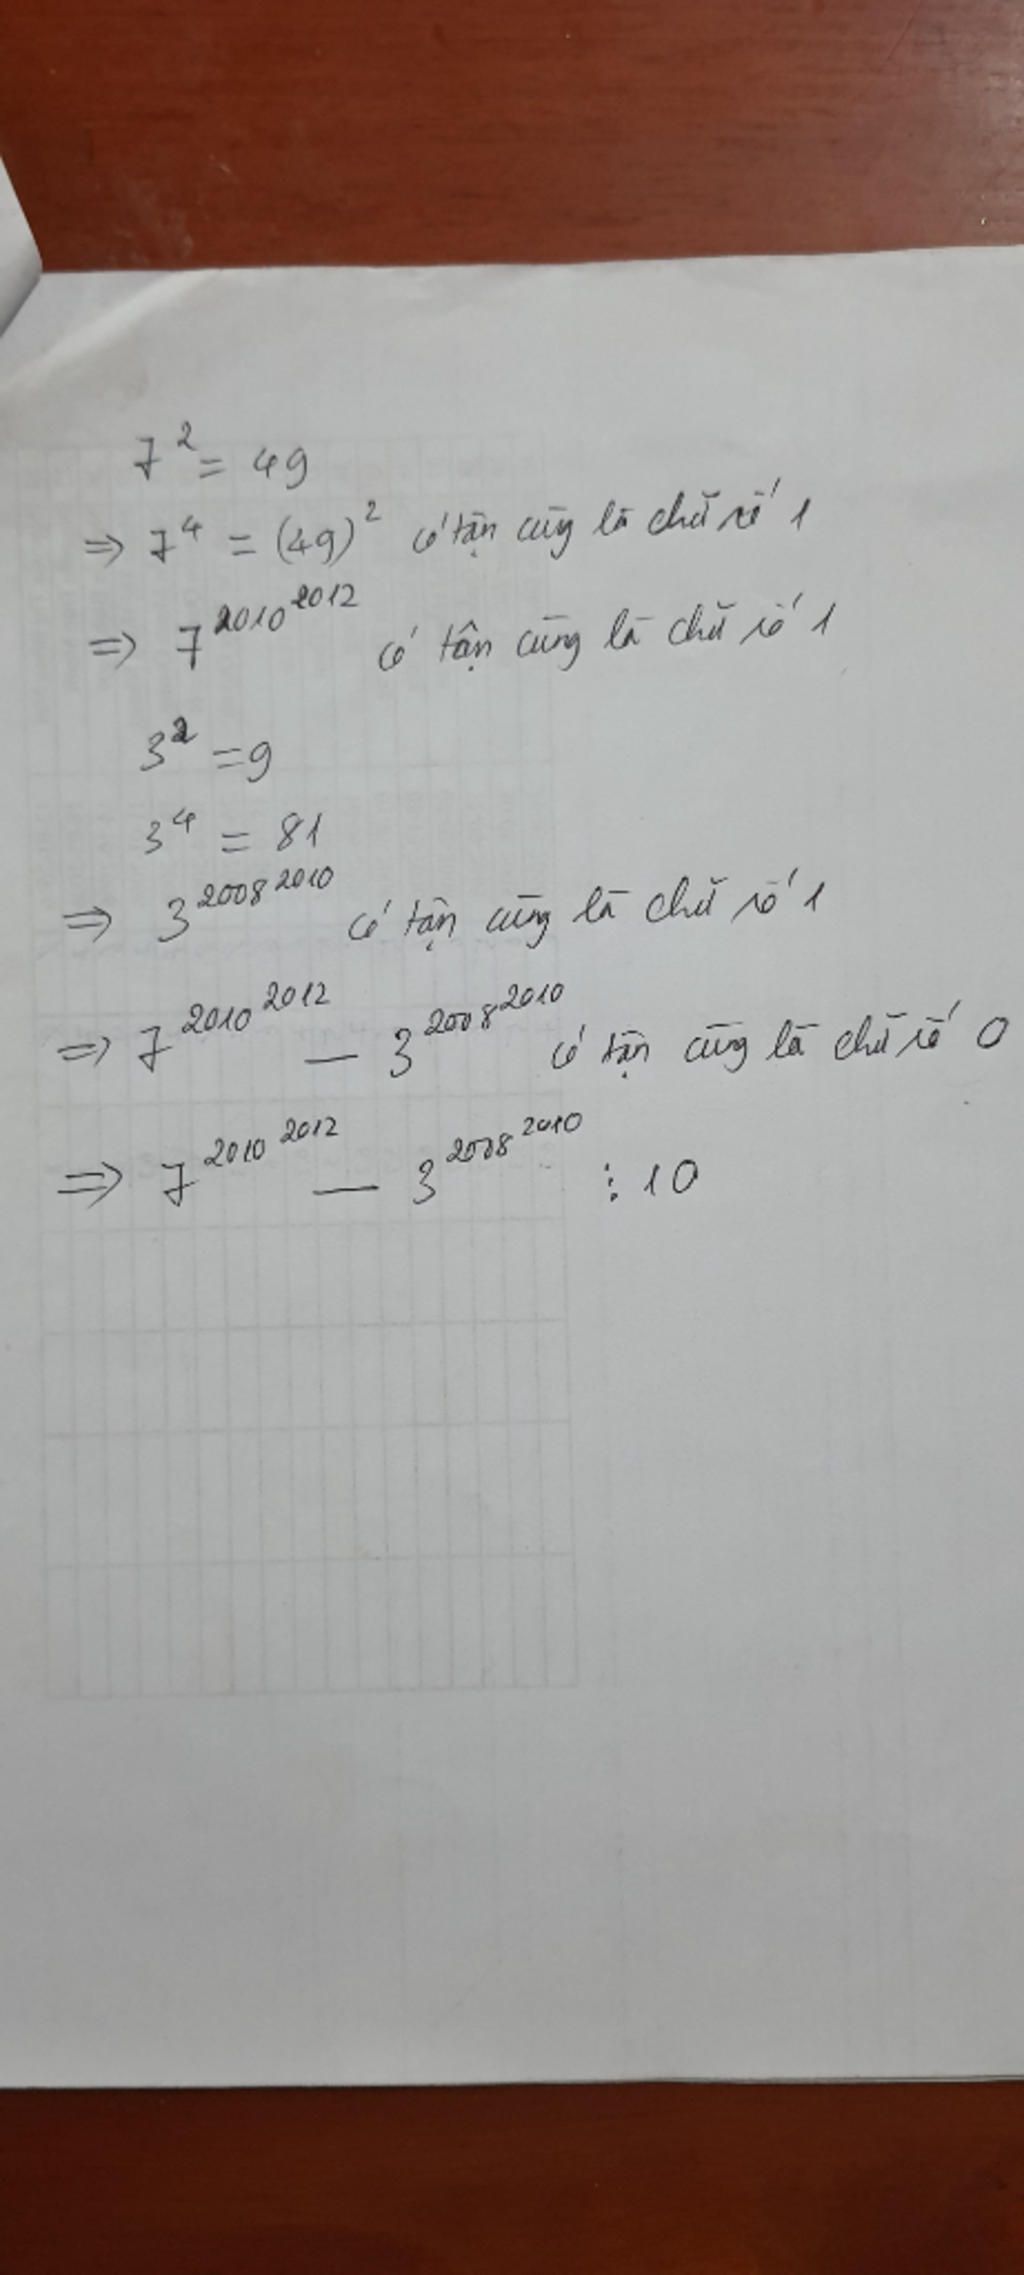 7² = 49
⇒ 7⁴ = (49)² có tận cùng là chữ số 1
⇒ 7^2010^2012 có tận cùng là chữ số 1
3² = 9
3⁴ = 81
⇒ 3^2008^2010 có tận cùng là chữ số 1
⇒ 7^2010^2012 − 3^2008^2010 có tận cùng là chữ số 0
⇒ 7^2010^2012 − 3^2008^2010 ⋮ 10